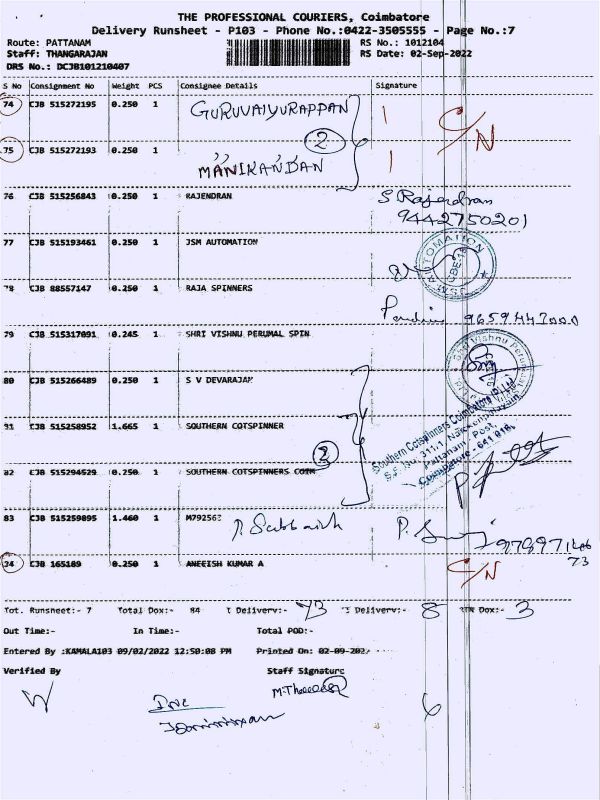 THE PROFESSIONAL COURIERS, Coimbatore
Delivery Runsheet - P103 - Phone No.:0422-3505555 - Page No.:7
Route: PATTANAM RS No.: 1012104
Staff: THANGARAJAN RS Date: 02-Sep-2022
DRS No.: DCJB101210407
S No Consignment No Weight PCS Consignee Details Signature
74 CJB 515272195 0.250 1 GURUVAIYURAPPAN C/N
75 CJB 515272193 0.250 1 2
MANIKANDAN
76 CJB 515256843 0.250 1 RAJENDRAN S Rajendran
9442750201
77 CJB 515193461 0.250 1 JSM AUTOMATION JSM AUTOMATION CBE-16
78 CJB 88557147 0.250 1 RAJA SPINNERS
79 CJB 515317091 0.245 1 SHRI VISHNU PERUMAL SPIN Shri Vishnu Perumal
80 CJB 515266489 0.250 1 S V DEVARAJAN
81 CJB 515258952 1.665 1 SOUTHERN COTSPINNER Southern Cotspinners Coimbatore (P) Ltd
Pattanam - Post,
Coimbatore - 641 016.
82 CJB 515294529 0.250 1 SOUTHERN COTSPINNERS COIM
83 CJB 515259895 1.460 1 M79256
84 CJB 165189 0.250 1 ANEEISH KUMAR A C/N
Tot. Runsheet:- 7 Total Dox:- 84 Delivery:- 73 Delivery:- 8 RTN Dox:- 3
Out Time:- In Time:- Total POD:-
Entered By :KAMALA103 09/02/2022 12:50:08 PM Printed On: 02-09-202
Verified By Staff Signature